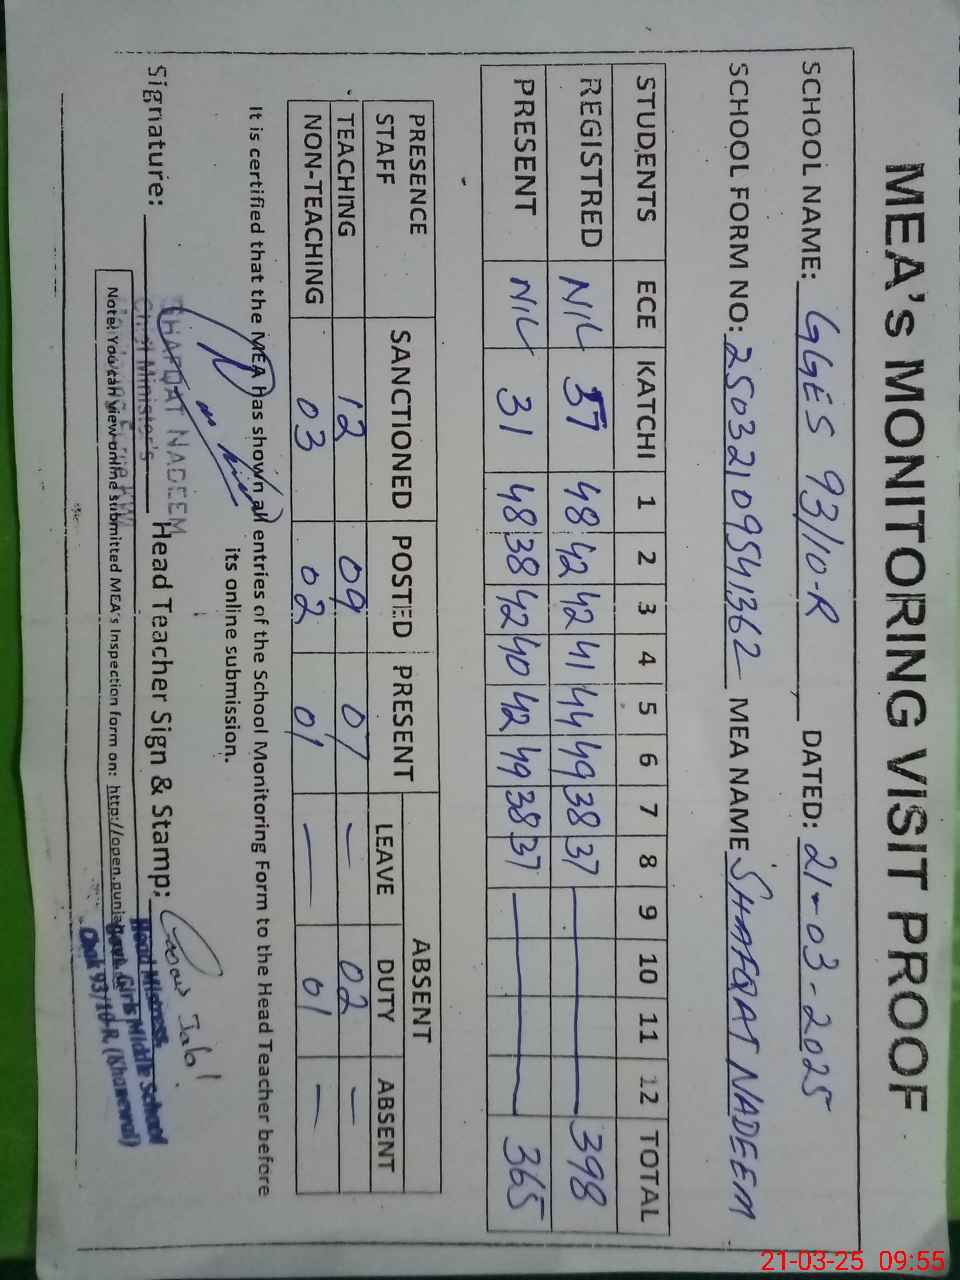 MEA's MONITORING VISIT PROOF
SCHOOL NAME: GGES 93/10-R, DATED: 21-03-2025
SCHOOL FORM NO: 25032109541362 MEA NAME SHAFQAT NADEEM
STUDENTS ECE KATCHI 1 2 3 4 5 6 7 8 9 10 11 12 TOTAL
REGISTRED NIL 57 48 42 42 41 44 49 38 37 398
PRESENT NIL 31 48 38 42 40 42 49 38 37 365
PRESENCE STAFF SANCTIONED POSTED PRESENT ABSENT
LEAVE DUTY ABSENT
TEACHING 12 09 07 — 02 —
NON-TEACHING 03 02 01 — 01 —
It is certified that the MEA has shown all entries of the School Monitoring Form to the Head Teacher before
its online submission.
SHAFQAT NADEEM
Chief Minister's
Signature: Head Teacher Sign & Stamp:
Head Mistress
Govt. Girls Middle School
Chak 93/10-R, (Khanewal)
Note: You can view online submitted MEA's Inspection form on: http://open.punjab
21-03-25 09:55